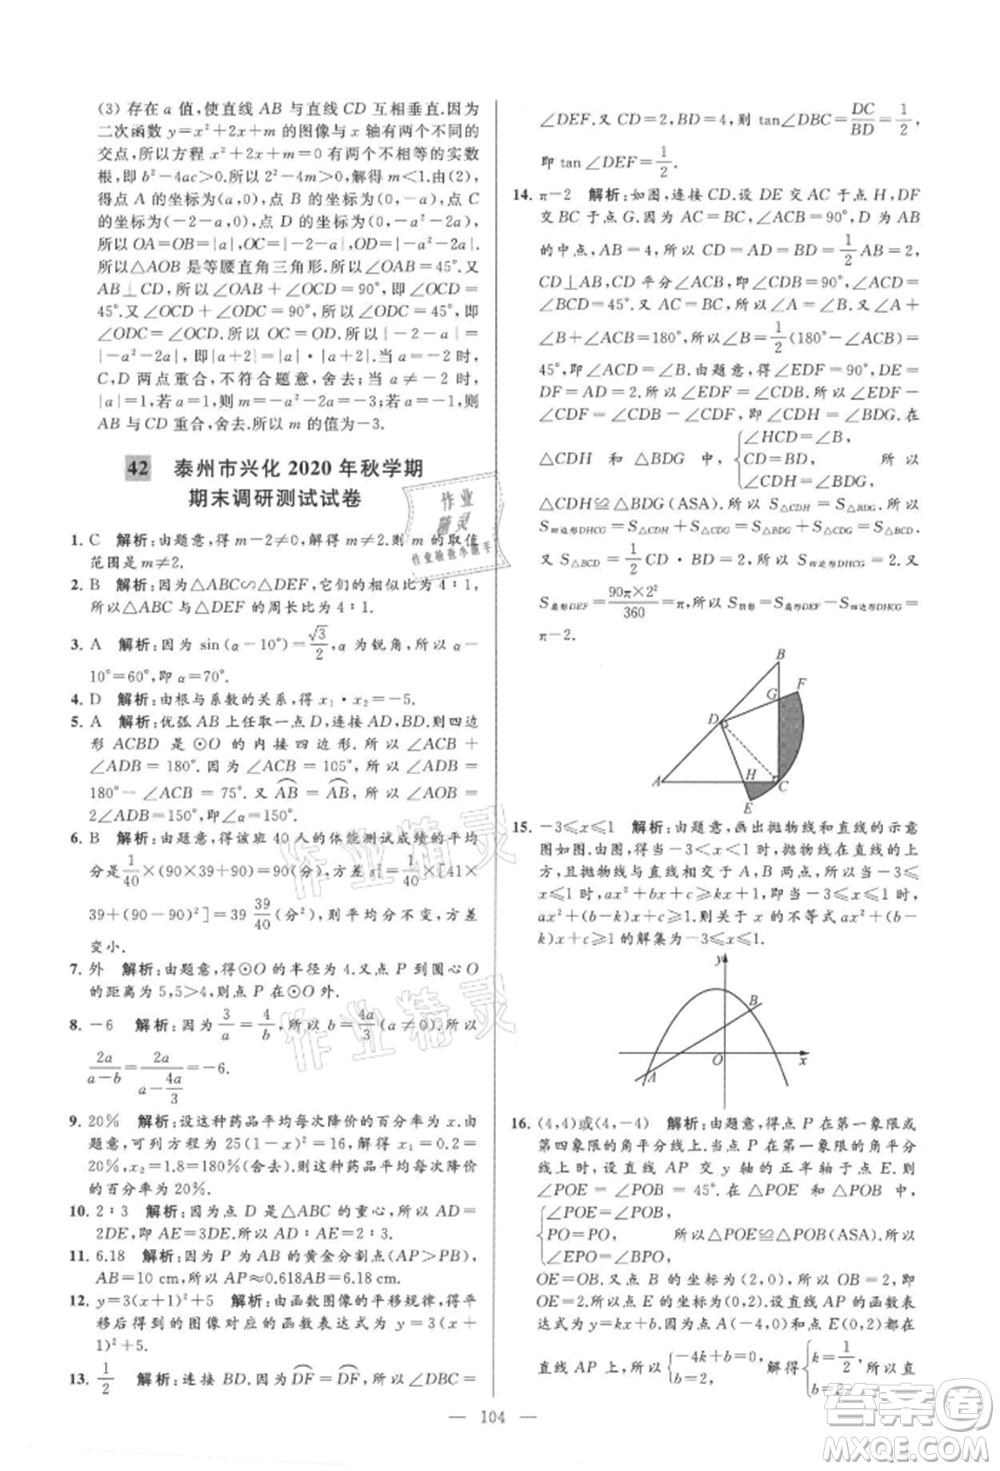 (3) 存在 a 值,使直线 AB 与直线 CD 互相垂直.因为
二次函数 y=x²+2x+m 的图像与 x 轴有两个不同的
交点,所以方程 x²+2x+m=0 有两个不相等的实数
根,即 b²-4ac>0.所以 2²-4m>0,解得 m<1.由(2),
得点 A 的坐标为(a,0),点 B 的坐标为(0,-a),点 C
的坐标为(-2-a,0),点 D 的坐标为(0,-a²-2a).
所以 OA=OB=|a|,OC=|a+2|,OD=|-a²-2a|.
所以△AOB 是等腰直角三角形.所以∠OAB=45°.又
AB⊥CD,所以∠OAB+∠OCD=90°,即∠OCD=
90°-∠OAB=45°.所以∠ODC+∠OCD=45°,即
∠ODC=∠OCD.所以 OC=OD.所以|a+2|=
|-a²-2a|,即|a+2|=|a+2|·|a|.当 a=-2 时,
C,D 两点重合,不符合题意,舍去;当 a≠-2 时,
|a|=1,所以 m=-a²-2a=-3;若 a=1,则直线
AB 与 CD 重合,舍去.所以 m 的值为-3.
42 泰州市兴化 2020 年秋学期
期末调研测试试卷
1. C 解析:由题意,得 m-2≠0,所以 m 的取值
范围是 m≠2.
2. B 解析:因为△ABC∽△DEF,它们的相似比是 4∶1,
所以△ABC 与△DEF 的周长比为 4∶1.
3. A 解析:因为 sin(α-10°)=√3/2,α 为锐角,所以 α-
10°=60°,即 α=70°.
4. D 解析:由根与系数的关系,得 x₁·x₂=-5.
5. A 解析:优弧 AB 上任取一点 D,连接 AD,BD,则四边
形 ACBD 是⊙O 的内接四边形.所以∠ACB+
∠ADB=180°.所以∠ADB=180°-∠ACB=
180°-105°=75°.又 AB=AB,所以∠AOB=
2∠ADB=150°.所以 α=150°.
6. B 解析:由题意,得该班 40 人的体能测试成绩的平均
分是 1/40×(90×39+90)=90(分),方差 s²=1/40×[41×
39+(90-90)²]=39 39/40(分²),则平均分不变,方差
变小.
7. 外 解析:由题意,得⊙O 的半径为 4.又点 P 到圆心 O
的距离为 5,5>4,则点 P 在⊙O 外.
8. -6 解析:因为 3/a=4/b,所以 b=4a/3(a≠0).所以
2a/(a-b)=2a/(a-4a/3)=-6.
9. 20% 解析:设这种药品平均每次降价的百分率为 x.由
题意,可列方程为 25(1-x)²=16,解得 x₁=0.2=
20%,x₂=1.8=180%(舍去).则这种药品平均每次降价
的百分率为 20%.
10. 2∶3 解析:因为点 D 是△ABC 的重心,所以 AD=
2DE,即 AE=3DE.所以 AD∶AE=2∶3.
11. 6.18 解析:因为 P 为 AB 的黄金分割点(AP>PB),
AB=10 cm,所以 AP≈0.618AB=6.18 cm.
12. y=3(x+1)²+5 解析:由函数图像的平移规律,得平
移后得到的图像对应的函数表达式为 y=3(x+
1)²+5.
13. 1/2 解析:连接 BD.因为 DF=DF,所以∠DBC=
∠DEF.又因为 CD=2,BD=4,则 tan∠DBC=DC/BD=1/2,
即 tan∠DEF=1/2.
14. π-2 解析:如图,连接 CD.设 DE 交 AC 于点 H,DF
交 BC 于点 G.因为 CA=CB,∠ACB=90°,D 为 AB
的中点,AB=4,所以 CD=AD=BD=1/2AB=2,
CD⊥AB,CD 平分∠ACB.所以∠CDB=90°,∠DCH=
∠BCD=45°.因为 AC=BC,所以∠A=∠B.又∠A+
∠B+∠ACB=180°,所以∠B=1/2(180°-∠ACB)=
45°,所以∠DCH=∠B.由题意,得∠EDF=90°,DE=
DF=AD=2.所以∠EDF=∠CDB.所以∠EDF-
∠CDF=∠CDB-∠CDF,即∠CDH=∠BDG.在
△CDH 和△BDG 中,{∠DCH=∠B, CD=BD, ∠CDH=∠BDG, 所以
△CDH≌△BDG(ASA).所以 S△CDH=S△BDG.所以
S四边形DHCG=S△CDH+S△CDG=S△BDG+S△CDG=S△BCD.
又 S△BCD=1/2CD·BD=2,所以 S四边形DHCG=2.又
S扇形DEF=90π×2²/360=π,所以 S阴影=S扇形DEF-S四边形DHCG=
π-2.
B
G
F
D
A
H
C
E
15. -3≤x≤1 解析:由题意,画出抛物线和直线的示意
图如图所示.因为抛物线与直线交于点 A,B 两点,
且抛物线在直线的上方,所以 ax²+c≥kx+b,即
ax²+(b-k)x+c≥1.则关于 x 的不等式 ax²+(b-
k)x+c≥1的解集为-3≤x≤1.
y
B
O
x
A
16. (4,4)或(4,-4) 解析:由题意,得点 P 在第一象限或
第四象限的角平分线上.当点 P 在第一象限的角平分
线上时,设直线 AP 交 y 轴的正半轴于点 E,则
∠POE=∠POB=45°.在△POE 和△POB 中,
{∠POE=∠POB, PO=PO, ∠EPO=∠BPO, 所以△POE≌△POB(ASA).所以
OE=OB.因为点 B 的坐标为(2,0),所以 OB=2.所以
OE=2.所以点 E 的坐标为(0,2).设直线 AP 的函数表
达式为 y=kx+b.因为点 A(-4,0)和点 E(0,2)都在
直线 AP 上,所以 {-4k+b=0, b=2, 解得 {k=1/2, b=2, 所以直线
— 104 —
作业精灵
作业检查小助手
作业精灵
作业精灵
答案圈
MXQE.COM